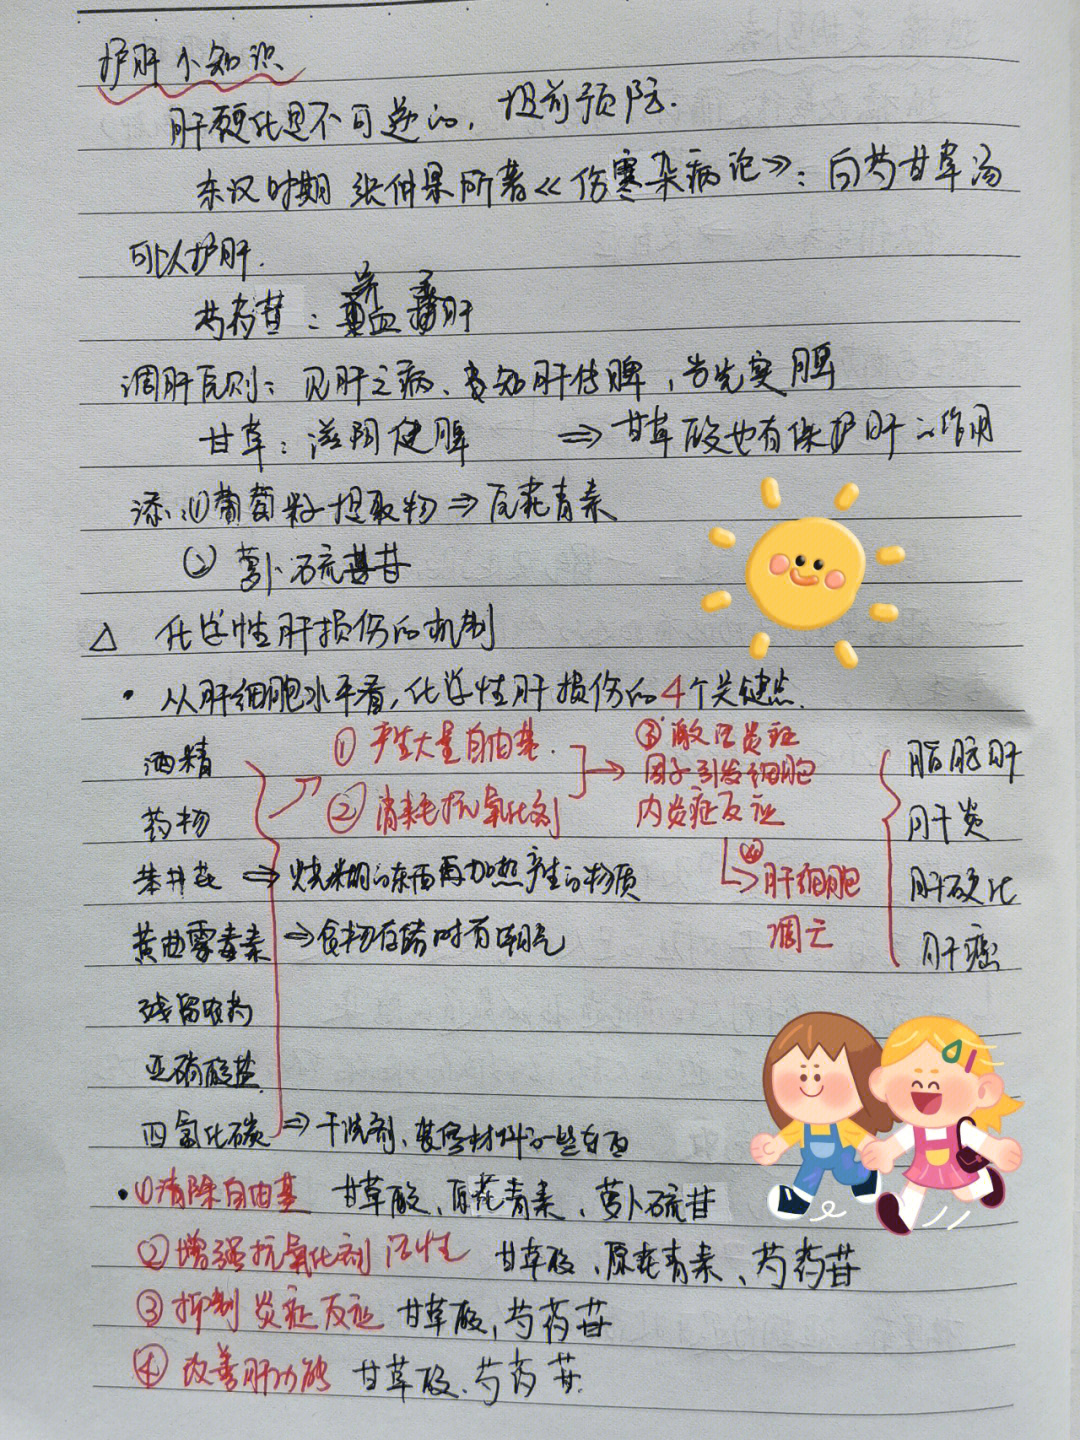 护肝小知识
肝硬化是不可逆的，提前预防.
东汉时期 张仲景所著《伤寒杂病论》：白芍甘草汤
可以护肝.
芍药苷：养血 柔肝
调肝原则：见肝之病、知肝传脾，当先实脾
甘草：滋阴健脾 ⇒ 甘草酸也有保护肝的作用
添：①葡萄籽提取物 ⇒ 原花青素
② 萝卜硫苷
△ 化学性肝损伤的机制
· 从肝细胞水平看，化学性肝损伤的4个关键点.
① 产生大量自由基.
② 消耗抗氧化剂
③ 激活炎症
因子引发细胞
内炎症反应
④肝细胞
凋亡
脂肪肝
肝炎
肝硬化
肝癌
酒精
药物
苯并芘 ⇒ 烧糊的东西再加热产生的物质
黄曲霉毒素 ⇒ 食物存储时有潮气
残留农药
亚硝酸盐
四氯化碳 ⇒ 干洗剂、装修材料的一些东西
·①清除自由基 甘草酸、原花青素、萝卜硫苷
②增强抗氧化剂活性 甘草酸、原花青素、芍药苷
③抑制炎症反应 甘草酸，芍药苷
④改善肝功能 甘草酸、芍药苷.